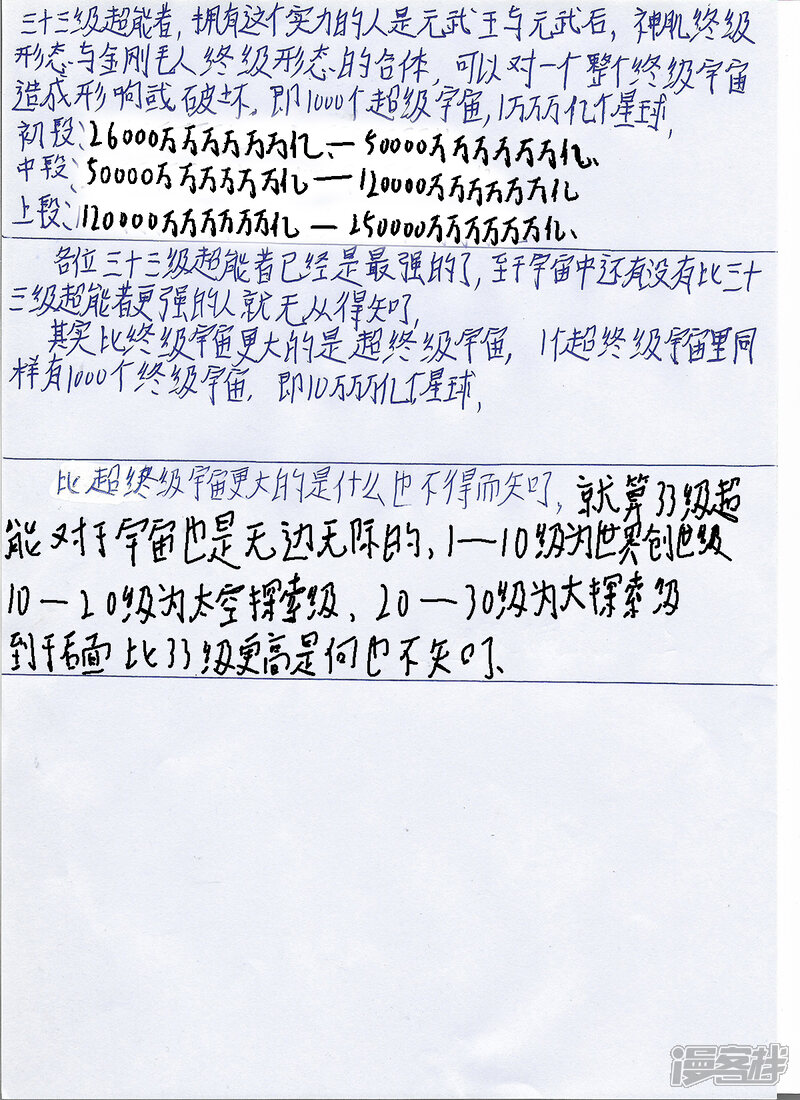 三十三级超能者，拥有这个实力的人是元武王与元武后，神肌终级
形态与金刚毛人终级形态的合体，可以对一个整个终级宇宙
造成形响或破坏，即1000个超级宇宙，1万万万亿个星球，
初段、26000万万万万万万亿、— 50000万万万万万万亿、
中段、50000万万万万万万亿 — 120000万万万万万万亿
上段、120000万万万万万万亿 — 250000万万万万万万亿、
各位三十三级超能者已经是最强的了，至于宇宙中还有没有比三十
三级超能者更强的人就无从得知了，
其实比终级宇宙更大的是超终级宇宙，1个超终级宇宙里同
样有1000个终级宇宙，即10万万万亿个星球，
比超终级宇宙更大的是什么也不得而知了，就算33级超
能对于宇宙也是无边无际的，1—10级为世界创世级
10—20级为太空探索级、20—30级为大探索级
到于后面比33级更高是何也不知了、
漫客栈